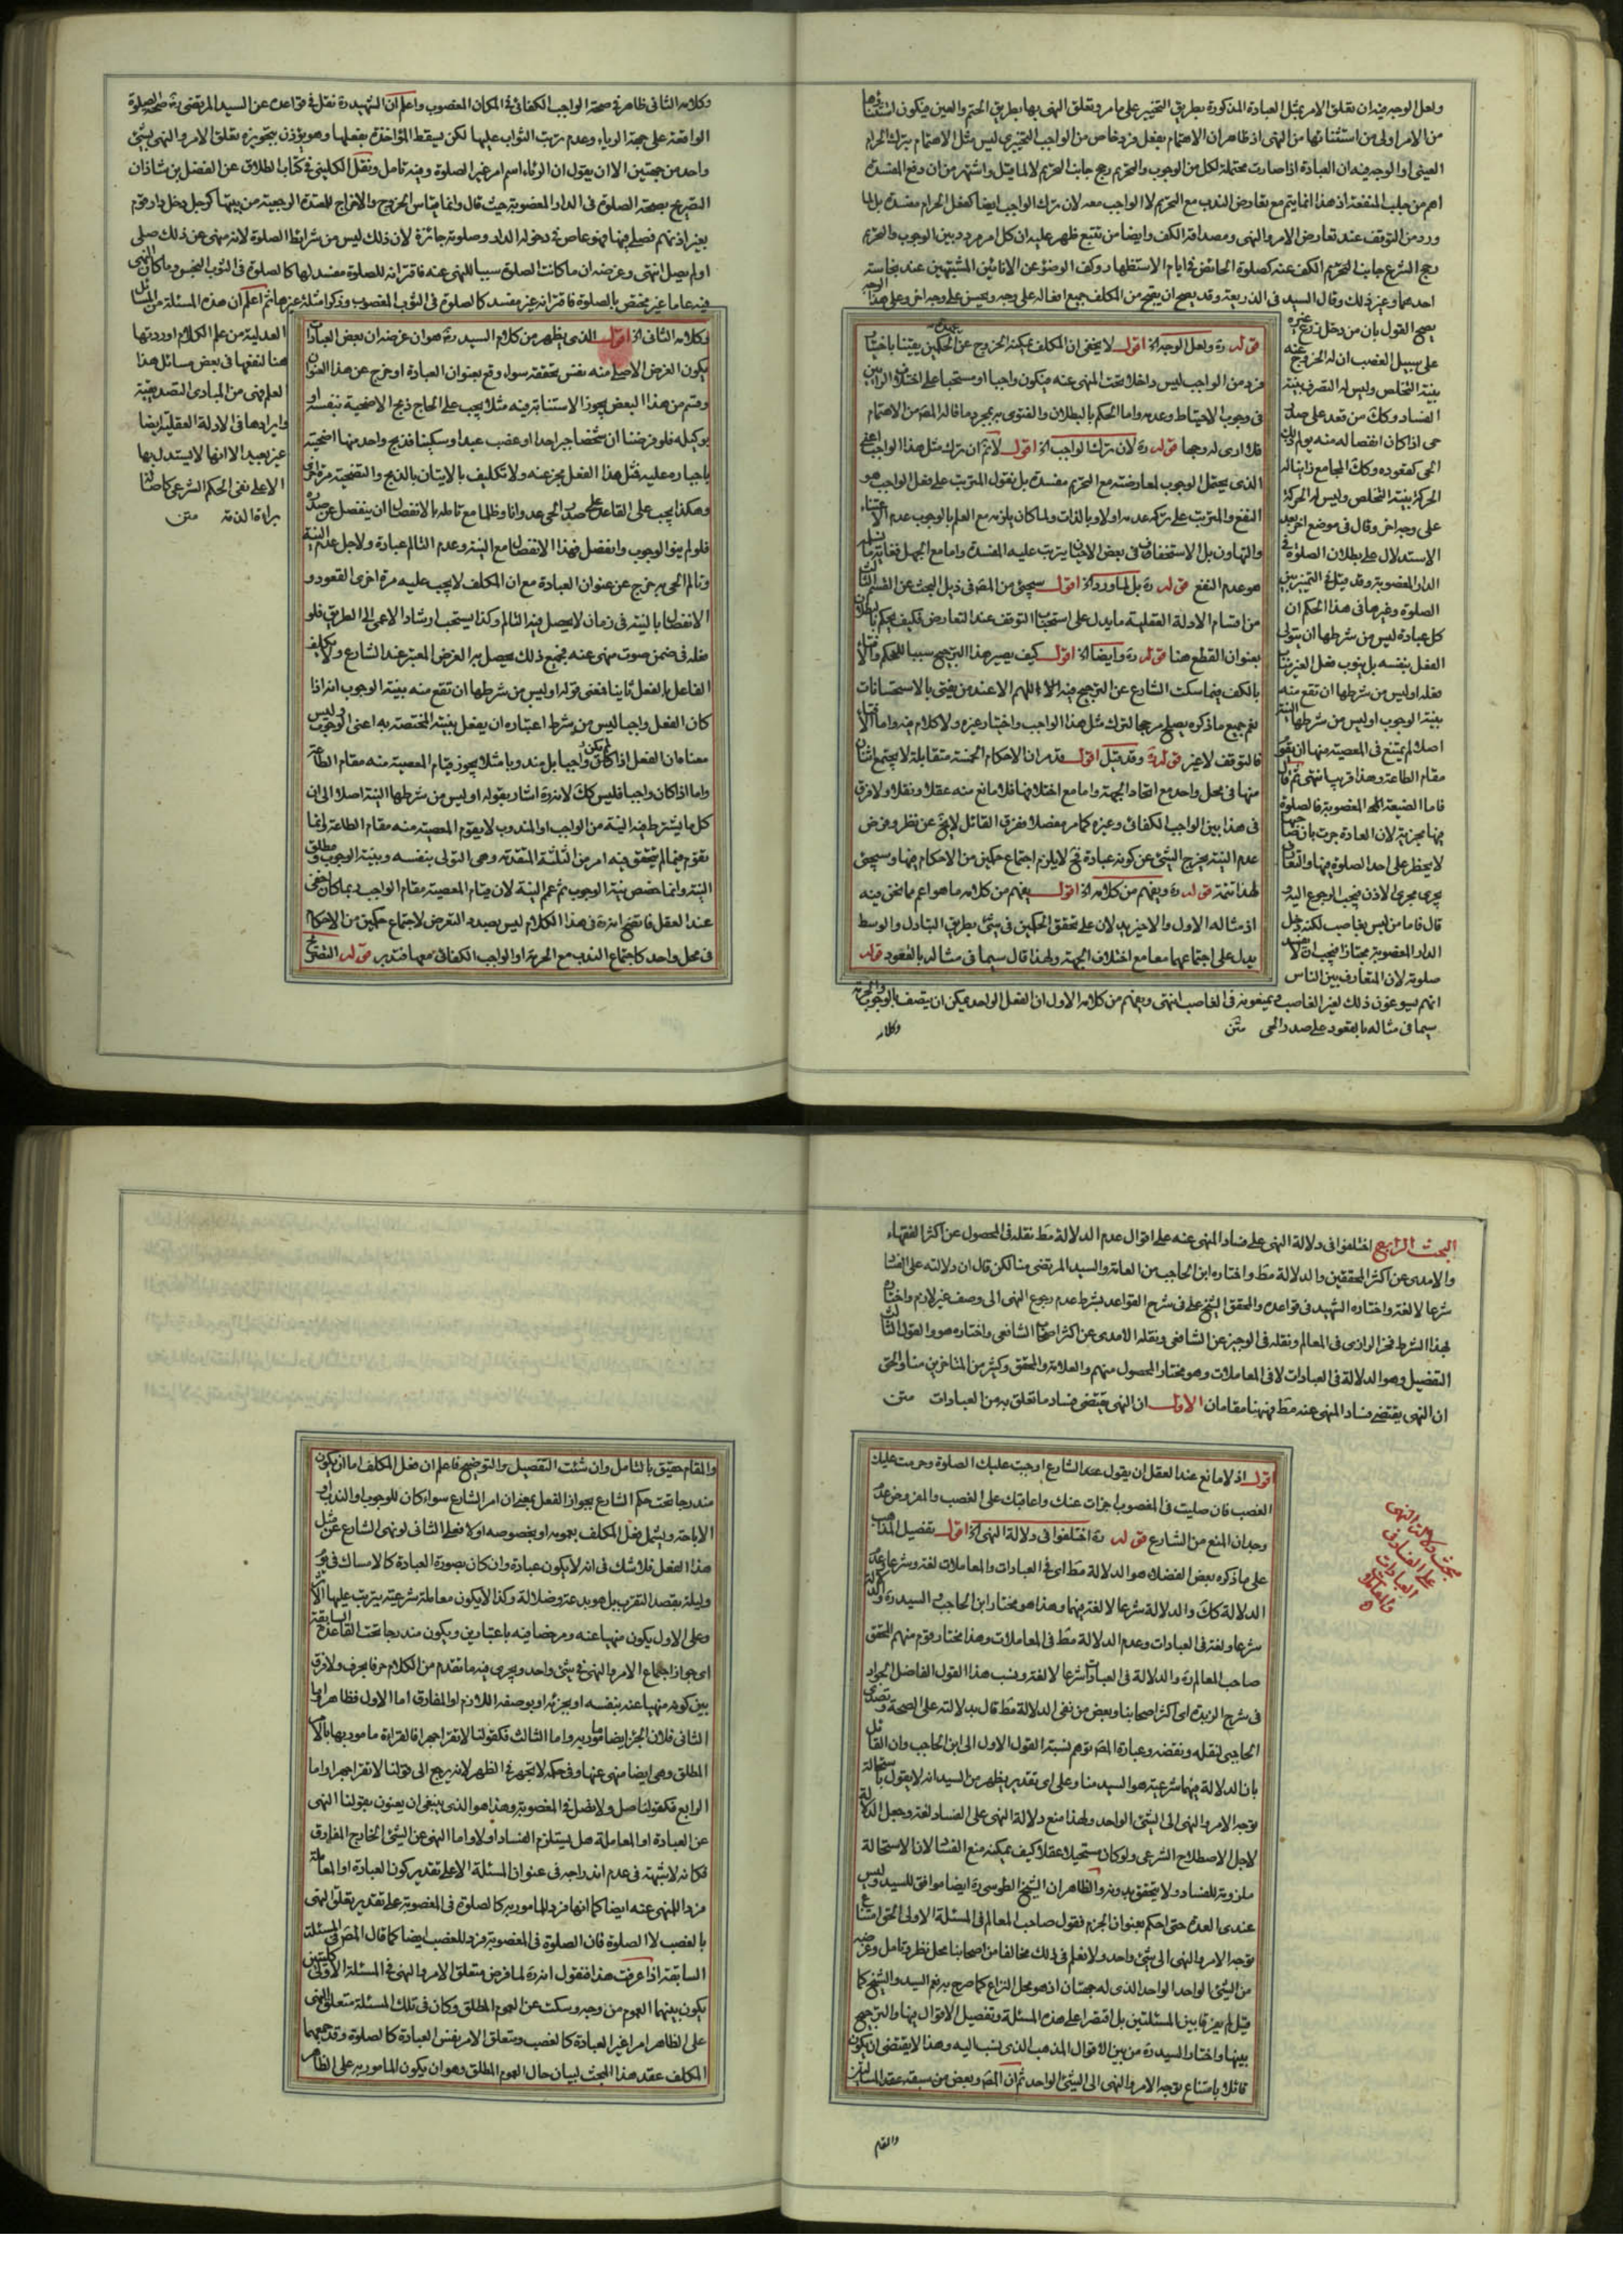 ولعل الوجه فيه ان تعلق الامر بمثل العبادة المذكورة بطريق التخيير على ما مر وتعلق النهى بها بطريق الحتم والعين فيكون استثناؤها
من الامر اولى من استثنائها من النهى اذ ظاهر ان الاهتمام بفعل فرد خاص من الواجب التخييرى ليس مثل الاهتمام بترك الحرام
العينى او الوجه فيه ان العبادة اذا صارت محتملة لكل من الوجوب والتحريم رجح جانب التحريم لا لما قيل واشتهر من ان دفع المفسدة
اهم من جلب المنفعة اذ هذا انما يتم مع تعارض الندب مع التحريم لا الواجب معه لان ترك الواجب ايضا كفعل الحرام مفسدة بل لما
ورد من التوقف عند تعارض الامر والنهى ومصداقه الكف وايضا من تتبع ظهر عليه ان كل امر مردد بين الوجوب والتحريم
رجح الشرع جانب التحريم الكف عنه كصلوة الحائض فى ايام الاستظهار وكف الوضوء عن الانائين المشتبهين عند نجاسة
احدهما وغير ذلك وقال السيد فى الذريعة وقد يصح ان يقبح من المكلف جميع افعاله على وجه ويحسن على وجه اخر وعلى هذا الوجه
يصح القول بان من دخل زرع غيره
على سبيل الغصب ان له الخروج عنه
بنية التخلص وليس له التصرف بنية
الفساد وكك من قعد على صدر
حى اذا كان انفصاله منه يولم ذلك
الحى كقعوده وكك المجامع زانيا له
الحركة بنية التخلص وليس له الحركة
على وجه اخر وقال فى موضع اخر بعد
الاستدلال على بطلان الصلوة فى
الدار المغصوبة وقد قيل فى التمييز بين
الصلوة وغيرها فى هذا الحكم ان
كل عبادة ليس من شرطها ان يتولى
الفعل بنفسه بل ينوب فعل الغير مناب
فعله او ليس من شرطها ان تقع منه
بنية الوجوب او ليس من شرطها النية
اصلا لم يمتنع فى المعصية منها ان يقوم
مقام الطاعة وهذا قريب انتهى ثم قال
فاما الضيعة المغصوبة فالصلوة
فيها مجزية لان العادة جرت بان صاحبها
لا يحظر على احد الصلوة فيها والتعارف
يجرى مجرى الاذن فيجب الرجوع اليه و
قال فاما من ليس بغاصب لكنه دخل
الدار المغصوبة مجتازا فيجب ان لا يفسد
صلوته لان المتعارف بين الناس
انهم يسوغون ذلك لغير الغاصب ويمنعونه فى الغاصب انتهى ويفهم من كلامه الاول ان الفعل الواحد يمكن ان يتصف بالوجوب والحرمة
سيما فى مثاله بالقعود على صدر الحى متن
وكلامه
قوله ره ولعل الوجه اه اقول لا يخفى ان المكلف يمكنه الخروج عن عهدة الحكمين يقينا باختيار
فرد من الواجب ليس داخلا تحت المنهى عنه فيكون واجبا او مستحبا على اختلاف الرأيين
فى وجوب الاحتياط وعدمه واما الحكم بالبطلان والفتوى به بمجرد ما قاله المص من الاهتمام
فلا ارى له وجها قوله ره لان ترك الواجب اه اقول لا نم ان ترك مثل هذا الواجب اعنى
الذى يحتمل الوجوب لمعارضته مع التحريم مفسدة بل نقول المترتب على فعل الواجب هو
النفع والمترتب على تركه عدمه اولا وبالذات ولما كان يلزمه مع العلم بالوجوب عدم الاعتناء
والتهاون بل الاستخفاف فى بعض الاحيان يترتب عليه المفسدة واما مع الجهل فغاية ما يسلم
هو عدم النفع قوله ره بل لما ورد اه اقول سيجئ من المص فى ذيل البحث عن القسم الثالث
من اقسام الادلة العقلية ما يدل على استحباب التوقف عند التعارض فكيف يحكم بالبطلان
بعنوان القطع هنا قوله ره وايضا اه اقول كيف يصير هذا الترجيح سببا للحكم والافتاء
بالكف فيما سكت الشارع عن الترجيح فيه اللهم الا عند من يفتى بالاستحسانات
نعم جميع ما ذكره يصلح مرجحا لترك مثل هذا الواجب واختيار غيره ولا كلام فيه واما الافتاء
فالتوقف لا غير قوله ره وقد قيل اقول قد مر ان الاحكام الخمسة متقابلة لا يجتمع اثنان
منها فى محل واحد مع اتحاد الجهة واما مع اختلافها فلا مانع منه عقلا ونقلا ولا فرق
فى هذا بين الواجب الكفائى وغيره كما مر مفصلا ففرق القائل لا يخ عن نظر وفرض
عدم النية يخرج الشئ عن كونه عبادة فح لا يلزم اجتماع حكمين من الاحكام فيها وسيجئ
لهذا تتمة قوله ره ويفهم من كلامه اه اقول يفهم من كلامه ما هو اعم مما نحن فيه
اذ مثاله الاول والاخير يدلان على تحقق الحكمين فى شئ بطريق التبادل والوسط
يدل على اجتماعهما معا مع اختلاف الجهة ولهذا قال سيما فى مثاله بالقعود قوله
وكلامه الثانى ظاهر فى صحة الواجب الكفائى فى المكان المغصوب واعلم ان الشهيد ره نقل فى قواعده عن السيد المرتضى ره صحة الصلوة
الواقعة على جهة الرياء وعدم ترتب الثواب عليها لكن يسقط المؤاخذة بفعلها وهو يؤذن بتجويزه تعلق الامر والنهى بشئ
واحد من جهتين الا ان يقول ان الرئاء اسم امر غير الصلوة وفيه تامل ونقل الكلينى فى كتاب الطلاق عن الفضل بن شاذان
التصريح بصحة الصلوة فى الدار المغصوبة حيث قال وانما قياس الخروج والاخراج للمعتدة الرجعية من بيتها كرجل دخل دار قوم
بغير اذنهم فصلى فيها فهو عاص فى دخوله الدار وصلوته جائزة لان ذلك ليس من شرائط الصلوة لانه منهى عن ذلك صلى
اولم يصل انتهى وغرضه ان ما كانت الصلوة سببا للنهى عنه فاقترانه للصلوة مفسد لها كالصلوة فى الثوب النجس وما كان النهى
فيه عاما غير مختص بالصلوة فاقترانه غير مفسد كالصلوة فى الثوب المغصوب وذكر امثلة غيرها ثم اعلم ان هذه المسئلة من المسائل
العدلية من علم الكلام اوردتها
هنا لنفعها فى بعض مسائل هذا
العلم فهى من المبادى التصديقية
وايرادها فى الادلة العقلية ايضا
غير بعيد الا انها لا يستدل بها
الا على نفى الحكم الشرعى كاصالة
براءة الذمة متن
وكلامه الثانى اه اقول الذى يظهر من كلام السيد ره هو ان غرضه ان بعض العبادات
يكون الغرض الاصلى منه نفس تحققه سواء وقع بعنوان العبادة او خرج عن هذا العنوان
وقسم من هذا البعض يجوز الاستنابة فيه مثلا يجب على الحاج ذبح الاضحية بنفسه او
بوكيله فلو فرضنا ان شخصا جبر احدا او غصب عبدا وسكينا فذبح واحد منها اضحيته
باجباره عليه فمثل هذا الفعل يجز عنه ولا تكليف بالاتيان بالذبح والتضحية مرة اخرى
وهكذا يجب على القاعد على صدر الحى عدوانا وظلما مع تالمه بالانفصال ان ينفصل عن صدره
فلو لم ينو الوجوب وانفصل فهذا الانفصال مع النية وعدم التالم عبادة ولاجل عدم النية
وتالم الحى به خرج عن عنوان العبادة مع ان المكلف لا يجب عليه مرة اخرى القعود و
الانفصال بالنية فى زمان لا يحصل فيه التالم وكذا يستحب ارشاد الاعمى الى الطريق فلو
فعله فى ضمن صوت منهى عنه فجميع ذلك يحصل به الغرض المعتبر عند الشارع ولا يكلف
الفاعل بالفعل ثانيا فمعنى قوله او ليس من شرطها ان تقع منه بنية الوجوب انه اذا
كان الفعل واجبا ليس من شرط اعتباره ان يفعل بنيته المختصة به اعنى الوجوب وليس
معناه ان الفعل اذا لم يكن واجبا بل مندوبا مثلا يجوز قيام المعصية منه مقام الطاعة
واما اذا كان واجبا فليس كك لانه ره اشار بقوله او ليس من شرطها النية اصلا الى ان
كل ما يشترط فيه النية من الواجب او المندوب لا يقوم المعصية منه مقام الطاعة وانما
تقوم فيما لم يتحقق فيه امر من الثلثة المتقدمة وهى التولى بنفسه وبنية الوجوب ومطلق
النية وانما خصص نية الوجوب ثم عمم النية لان قيام المعصية مقام الواجب ربما كان اخفى
عند العقل فاتضح انه ره فى هذا الكلام ليس بصدد التعرض لاجتماع حكمين من الاحكام
فى محل واحد كاجتماع الندب مع الحرمة او الواجب الكفائى معها فتدبر قوله التصريح
البحث الرابع اختلفوا فى دلالة النهى على فساد المنهى عنه على اقوال عدم الدلالة مط نقله فى المحصول عن اكثر الفقهاء
والامدى عن اكثر المحققين والدلالة مط واختاره ابن الحاجب من العامة والسيد المرتضى منا لكن قال ان دلالته على الفساد
شرعا لا لغة واختاره الشهيد فى قواعده والمحقق الشيخ على فى شرح القواعد بشرط عدم رجوع النهى الى وصف غير لازم واختاره
لهذا الشرط فخر الرازى فى المعالم ونقله فى الوجيز عن الشافعى ونقله الامدى عن اكثر اصحاب الشافعى واختاره هو والقول الثالث
التفصيل وهو الدلالة فى العبادات لا فى المعاملات وهو مختار المحصول منهم والعلامة والمحقق وكثير من المتاخرين منا والحق
ان النهى يقتضى فساد المنهى عنه مط فههنا مقامان الاول ان النهى يقتضى فساد ما تعلق به من العبادات متن
مبحث دلالة النهى
على الفساد فى
العبادات
والمعاملات
اقول اذ لا مانع عند العقل ان يقول عند الشارع اوجبت عليك الصلوة وحرمت عليك
الغصب فان صليت فى المغصوب اجزات عنك واعاقبك على الغصب والمفروض عدم
وجدان المنع من الشارع قوله ره اختلفوا فى دلالة النهى اه اقول تفصيل المذاهب
على ما ذكره بعض الفضلاء هو الدلالة مط اى فى العبادات والمعاملات لغة وشرعا وعدم
الدلالة كك والدلالة شرعا لا لغة فيهما وهذا هو مختار ابن الحاجب والسيد ره والدلالة
شرعا ولغة فى العبادات وعدم الدلالة مط فى المعاملات وهذا مختار قوم منهم المحقق
صاحب المعالم ره والدلالة فى العبادات شرعا لا لغة ونسب هذا القول الفاضل الجواد
فى شرح الزبدة الى اكثر اصحابنا وبعض من نفى الدلالة مط قال بدلالته على الصحة وتصدى
الحاجبى لنقله ونقضه وعبارة المص توهم نسبة القول الاول الى ابن الحاجب وان القائل
بان الدلالة فيهما شرعية هو السيد منا وعلى اى تقدير يظهر من السيد انه لا يقول باستحالة
توجه الامر والنهى الى الشئ الواحد ولهذا منع دلالة النهى على الفساد لغة وجعل الدلالة
لاجل الاصطلاح الشرعى ولو كان مستحيلا عقلا كيف يمكنه منع الفساد لان الاستحالة
ملزومة للفساد ولا يتحقق بدونه والظاهر ان الشيخ الطوسى ره ايضا موافق للسيد وليس
عندى العدة حتى احكم بعنوان الجزم فقول صاحب المعالم فى المسئلة الاولى الحق امتناع
توجه الامر والنهى الى شئ واحد ولا نعلم فى ذلك مخالفا من اصحابنا محل نظر وتامل وغرضه
من الشئ الواحد الواحد الذى له جهتان اذ هو محل النزاع كما صرح به نعم السيد والشيخ كما
قيل لم يفرقا بين المسئلتين بل اقتصرا على هذه المسئلة وتفصيل الاقوال فيها والترجيح
بينها واختار السيد ره من بين الاقوال المذهب الذى ينسب اليه وهذا لا يقتضى ان يكون
قائلا بامتناع توجه الامر والنهى الى الشئ الواحد ثم ان المص وبعض من سبقه عقد المسئلتين
والمقام
والمقام حقيق بالتامل وان شئت التفصيل والتوضيح فاعلم ان فعل المكلف اما ان يكون
مندرجا تحت حكم الشارع بجواز الفعل بمعنى ان امر الشارع سواء كان للوجوب او الندب او
الاباحة ويشمل بفعل المكلف بعمومه او بخصوصه اولا فعلى الثانى لو نهى الشارع عن مثل
هذا الفعل فلا شك فى انه لا يكون عبادة وان كان بصورة العبادة كالامساك فى يوم
وليلة بقصد التقرب بل هو بدعة وضلالة وكذا لا يكون معاملة شرعية يترتب عليها الاثار
وعلى الاول يكون منهيا عنه ومرخصا فيه باعتبارين ويكون مندرجا تحت القاعدة السابقة
اى جواز اجتماع الامر والنهى فى شئ واحد ويجرى فيه ما تقدم من الكلام حرفا بحرف ولا فرق
بين كونه منهيا عنه بنفسه او بجزئه او بوصفه اللازم او المفارق اما الاول فظاهر واما
الثانى فلان الجزء ايضا مامور به واما الثالث فكقولنا لا تقرا جهرا فالقراءة مامور بها بالامر
المطلق وهى ايضا منهى عنها وفى حكمه لا تجهر فى الظهر لانه يرجع الى قولنا لا تقرا جهرا واما
الرابع فكقولنا صل ولا تصل فى المغصوبة وهذا هو الذى ينبغى ان يعنون بقولنا النهى
عن العبادة او المعاملة هل يستلزم الفساد اولا واما النهى عن الشئ الخارج المفارق
فكانه لا شبهة فى عدم اندراجه فى عنوان المسئلة الا على تقدير كون العبادة او المعاملة
فردا للمنهى عنه ايضا كما انها فرد للمامور به كالصلوة فى المغصوبة على تقدير تعلق النهى
بالغصب لا الصلوة فان الصلوة فى المغصوبة فرد للغصب ايضا كما قال المص فى المسئلة
السابقة اذا عرفت هذا فنقول انه ره لما فرض متعلق الامر والنهى فى المسئلة الاولى كليتين
يكون بينهما العموم من وجه وسكت عن العموم المطلق وكان فى تلك المسئلة متعلق النهى
على الظاهر امرا غير العبادة كالغصب ومتعلق الامر نفس العبادة كالصلوة وقد جمعهما
المكلف عقد هذا المبحث لبيان حال العموم المطلق وهو ان يكون المامور به على الظاهر